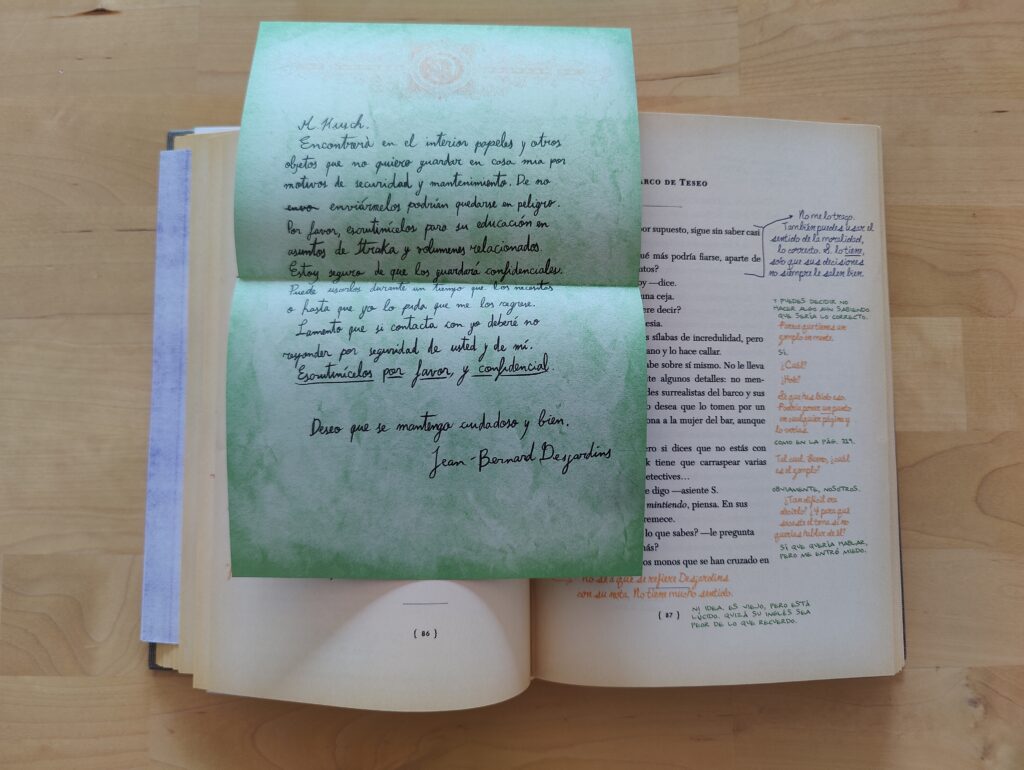 M. Husch.
Encontrará en el interior papeles y otros
objetos que no quiero guardar en casa mia por
motivos de securidad y mantenimiento. De no
envo enviármelos podrían quedarse en peligro.
Por favor, escrutinícelos para su educación en
asuntos de Straka y volumenes relacionados.
Estoy seguro de que los guardará confidenciales.
Puede usarlos durante un tiempo que los necesitas
o hasta que yo lo pida que me los regrese.
Lamento que si contacta con yo deberé no
responder por seguridad de usted y de mí.
Escrutinícelos por favor, y confidencial.
Deseo que se mantenga cuidadoso y bien.
Jean-Bernard Desjardins
{ 86 }
ARCO DE TESEO
por supuesto, sigue sin saber casi
ué más podría fiarse, aparte de
oy —dice.
una ceja.
ere decir?
esia.
s sílabas de incredulidad, pero
ano y lo hace callar.
abe sobre sí mismo. No le lleva
te algunos detalles: no men-
des surrealistas del barco y sus
o desea que lo tomen por un
ona a la mujer del bar, aunque
ero si dices que no estás con
k tiene que carraspear varias
detectives…
e digo —asiente S.
mintiendo, piensa. En sus
remece.
lo que sabes? —le pregunta
más?
os monos que se han cruzado en
{ 87 }
No me lo trago.
También puedes usar el
sentido de la moralidad,
lo correcto. S. lo tiene,
solo que sus decisiones
no siempre le salen bien.
Y PUEDES DECIDIR NO
HACER ALGO AUN SABIENDO
QUE SERÍA LO CORRECTO.
Parece que tienes un
ejemplo en mente.
SÍ.
¿Cuál?
¿Hola?
COMO EN LA PÁG.
Tal cual. Bueno, ¿cuál
es el ejemplo?
OBVIAMENTE, NOSOTROS.
¿Tan difícil era
decirlo? ¿Y para qué
sacaste el tema si no
querías hablar de él?
SÍ QUE QUERÍA HABLAR,
PERO ME ENTRÓ MIEDO.
No sé a qué se refiere Desjardins
con su nota. No tiene mucho sentido.
NI IDEA. ES VIEJO, PERO ESTÁ
LÚCIDO. QUIZÁ SU INGLÉS SEA
PEOR DE LO QUE RECUERDO.